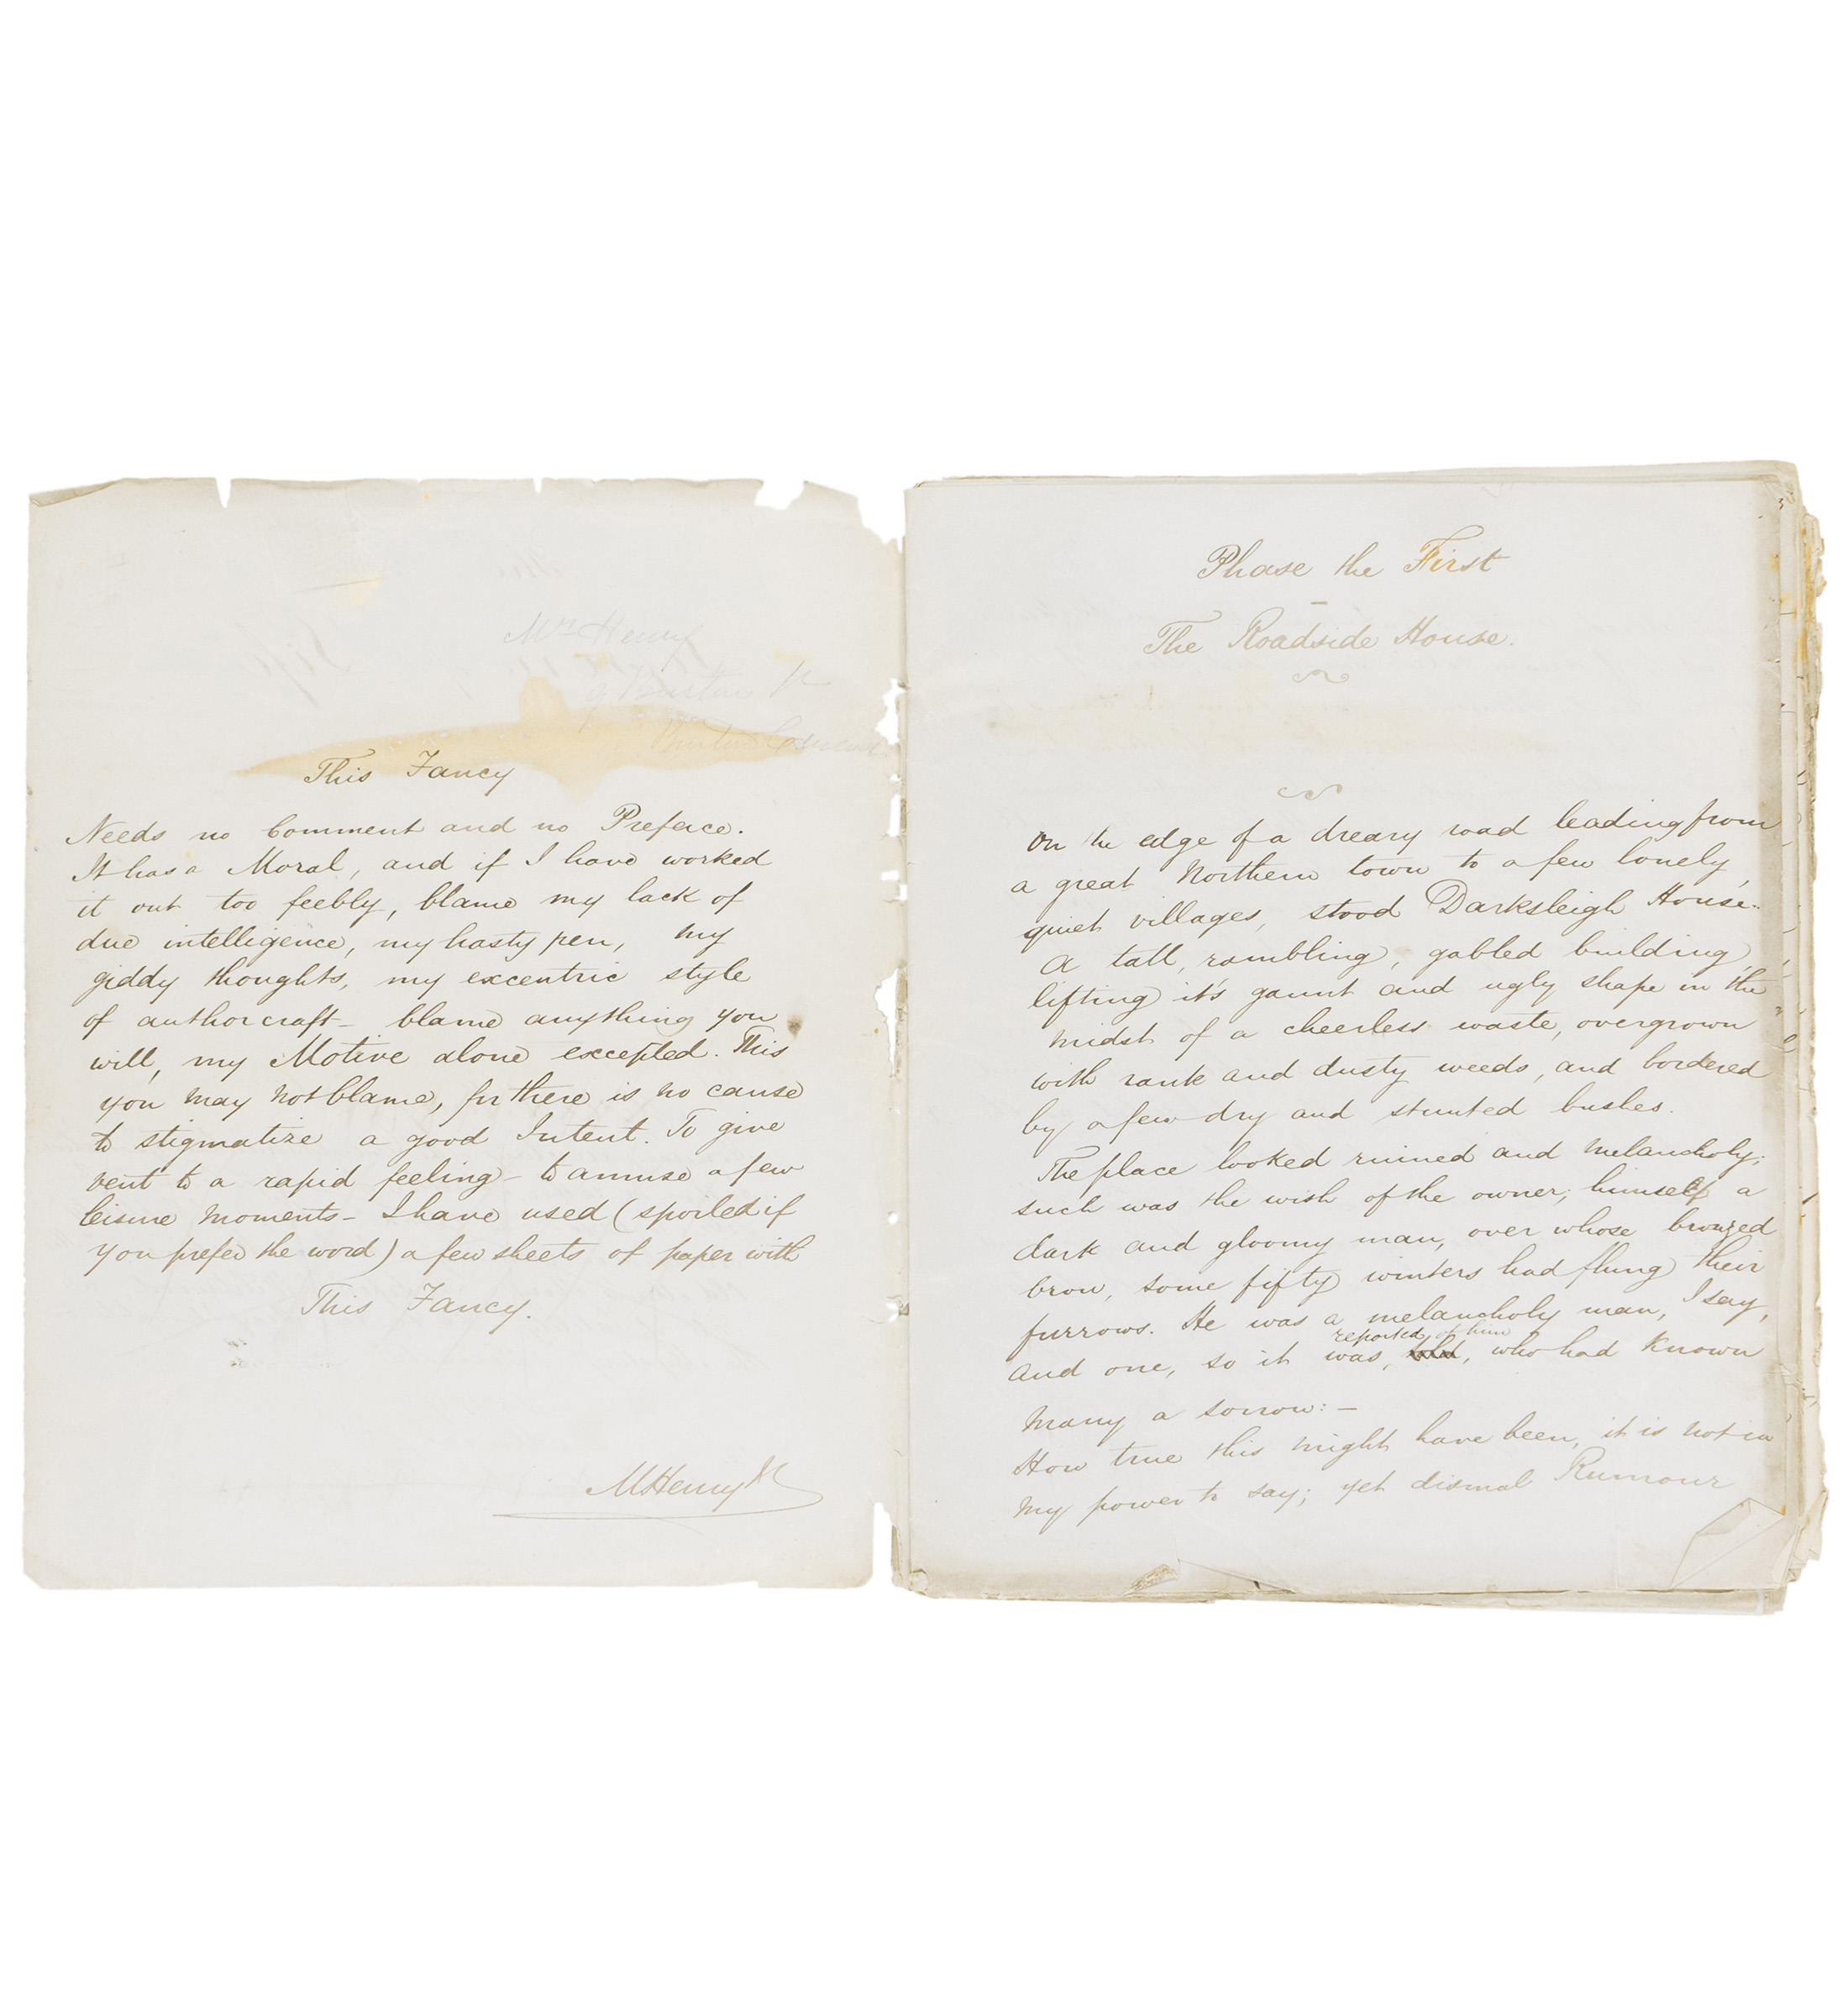 Mrs Henry
This Fancy
Needs no Comment and no Preface.
It has a Moral, and if I have worked
it out too feebly, blame my lack of
due intelligence, my hasty pen, my
giddy thoughts, my excentric style
of authorcraft – blame anything you
will, my Motive alone excepted. This
you may not blame, for there is no cause
to stigmatize a good Intent. To give
vent to a rapid feeling – to amuse a few
leisure moments – I have used (spoiled if
you prefer the word) a few sheets of paper with
This Fancy.
MHenry
Phase the First
The Roadside House.
On the edge of a dreary road leading from
a great Northern town to a few lonely,
quiet villages, stood Darksleigh House.
A tall, rambling, gabled building,
lifting it's gaunt and ugly shape in the
midst of a cheerless waste, overgrown
with rank and dusty weeds, and bordered
by a few dry and stunted bushes.
The place looked ruined and melancholy;
such was the wish of the owner, himself a
dark and gloomy man, over whose bronzed
brow, some fifty winters had flung their
furrows. He was a melancholy man, I say,
reported of him
and one, so it was, told, who had known
many a sorrow: –
How true this might have been, it is not in
my power to say; yet dismal Rumour